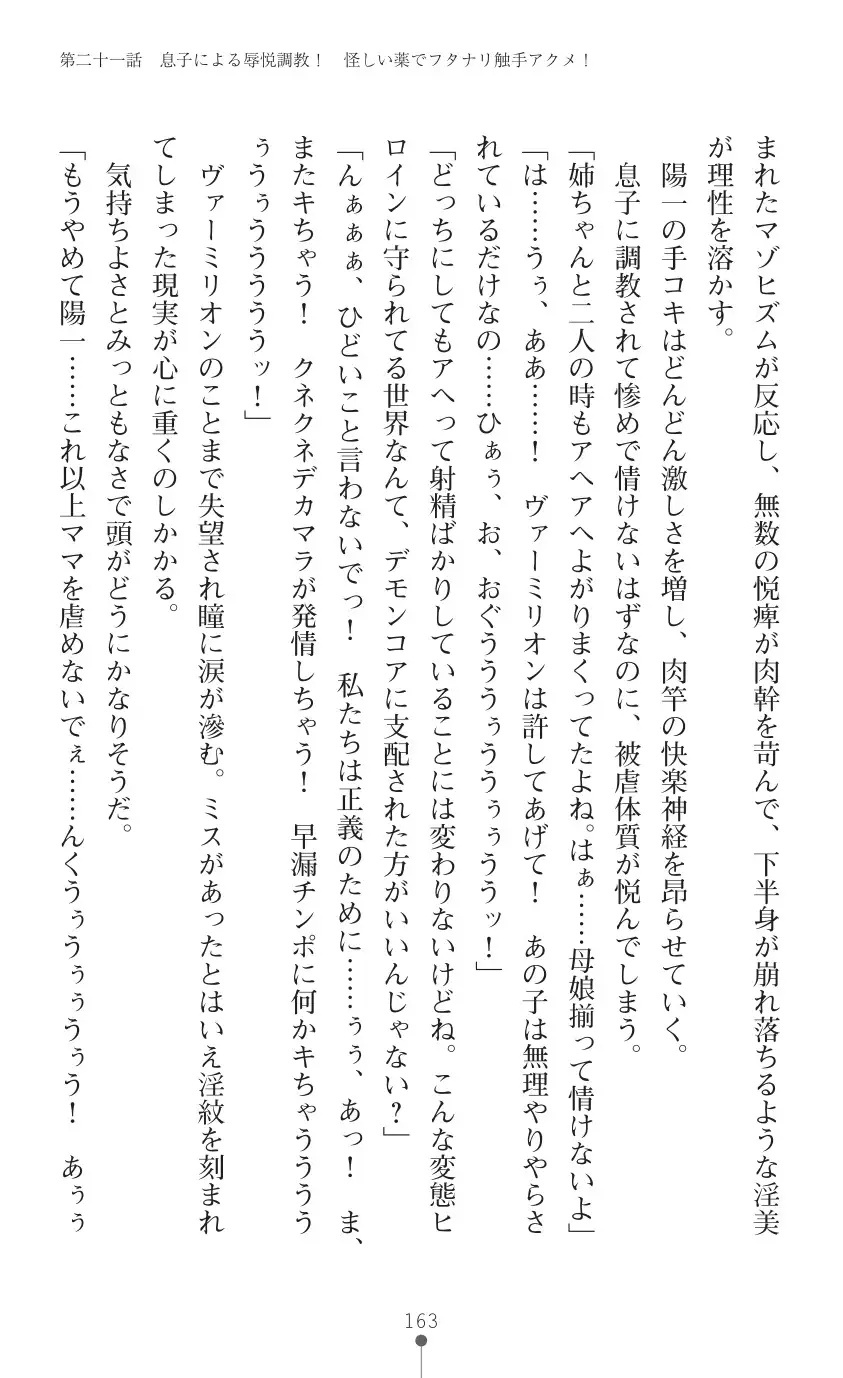 第二十一話　息子による辱悦調教！　怪しい薬でフタナリ触手アクメ！
まれたマゾヒズムが反応し、無数の悦痺が肉幹を苛んで、下半身が崩れ落ちるような淫美
が理性を溶かす。
　陽一の手コキはどんどん激しさを増し、肉竿の快楽神経を昂らせていく。
　息子に調教されて惨めで情けないはずなのに、被虐体質が悦んでしまう。
「姉ちゃんと二人の時もアヘアへよがりまくってたよね。はぁ……母娘揃って情けないよ」
「は……うぅ、ああ……！　ヴァーミリオンは許してあげて！　あの子は無理やりやらさ
れているだけなの……ひぁぅ、お、おぐうううぅううぅぅううッ！」
「どっちにしてもアヘって射精ばかりしていることには変わりないけどね。こんな変態ヒ
ロインに守られてる世界なんて、デモンコアに支配された方がいいんじゃない？」
「んぁぁぁ、ひどいこと言わないでっ！　私たちは正義のために……ぅぅ、あっ！　ま、
またキちゃう！　クネクネデカマラが発情しちゃう！　早漏チンポに何かキちゃうううう
ぅうぅうううううッ！」
　ヴァーミリオンのことまで失望され瞳に涙が滲む。ミスがあったとはいえ淫紋を刻まれ
てしまった現実が心に重くのしかかる。
　気持ちよさとみっともなさで頭がどうにかなりそうだ。
「もうやめて陽一……これ以上ママを虐めないでぇ……んくうぅうぅぅうぅう！　あぅぅ
163